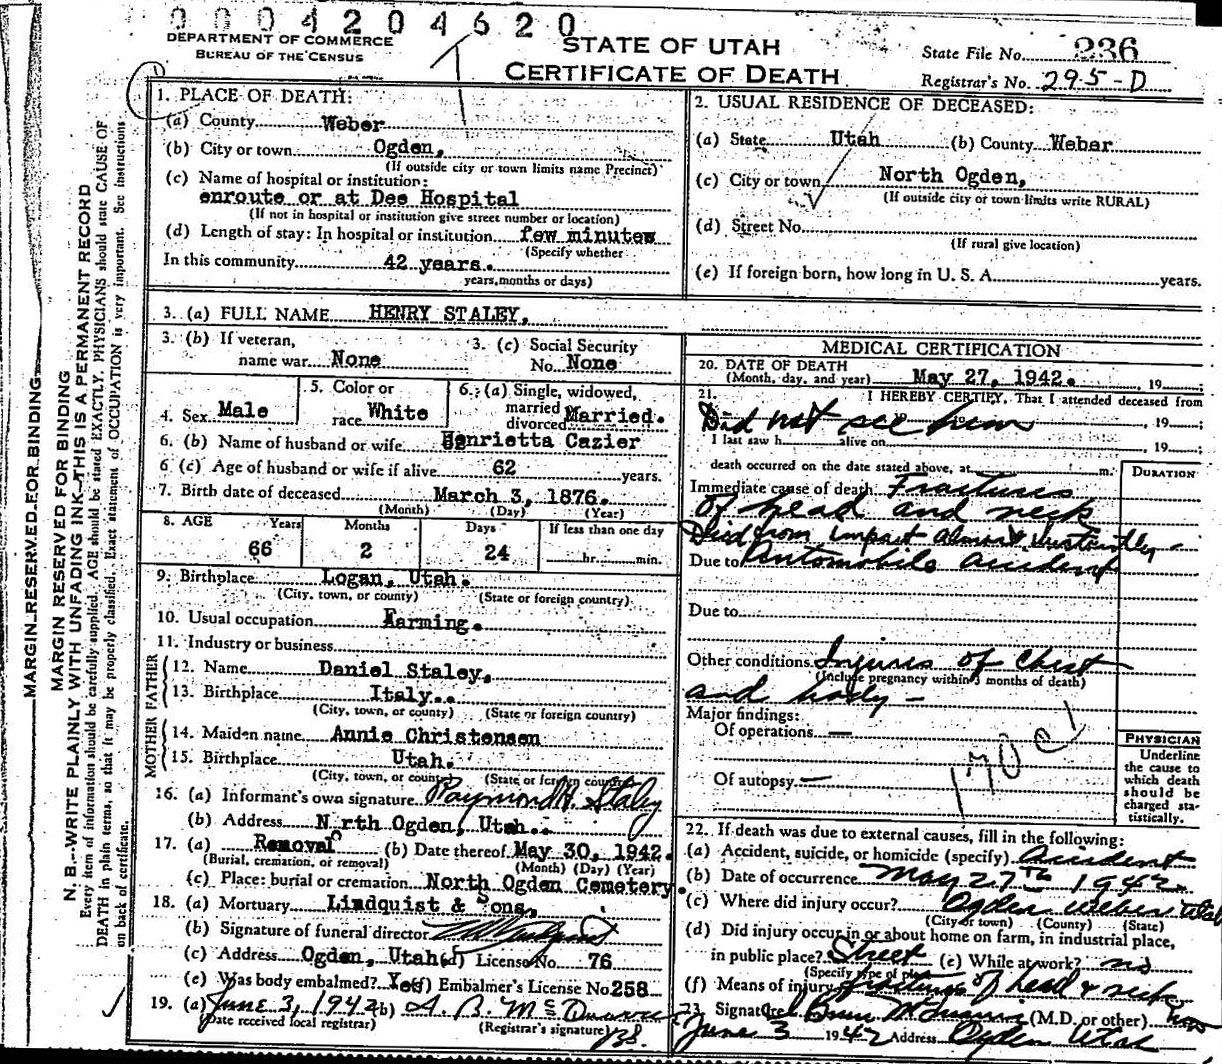 0004204620
DEPARTMENT OF COMMERCE
BUREAU OF THE CENSUS
STATE OF UTAH
CERTIFICATE OF DEATH
State File No. 236
Registrar's No. 295-D
MARGIN RESERVED FOR BINDING
MARGIN RESERVED FOR BINDING
N. B.--WRITE PLAINLY WITH UNFADING INK--THIS IS A PERMANENT RECORD
Every item of information should be carefully supplied. AGE should be stated EXACTLY. PHYSICIANS should state CAUSE OF
DEATH in plain terms, so that it may be properly classified. Exact statement of OCCUPATION is very important. See instructions
on back of certificate.
1. PLACE OF DEATH:
(a) County Weber
(b) City or town Ogden,
(If outside city or town limits name Precinct)
(c) Name of hospital or institution:
enroute or at Dee Hospital
(If not in hospital or institution give street number or location)
(d) Length of stay: In hospital or institution few minutes
(Specify whether
In this community 42 years.
years, months or days)
2. USUAL RESIDENCE OF DECEASED:
(a) State Utah (b) County Weber
(c) City or town North Ogden,
(If outside city or town limits write RURAL)
(d) Street No.
(If rural give location)
(e) If foreign born, how long in U. S. A. years.
3. (a) FULL NAME HENRY STALEY,
3. (b) If veteran,
name war None
3. (c) Social Security
No. None
4. Sex Male
5. Color or
race White
6. (a) Single, widowed,
married
divorced Married.
6. (b) Name of husband or wife Henrietta Cazier
6 (c) Age of husband or wife if alive 62 years.
7. Birth date of deceased March 3, 1876.
(Month) (Day) (Year)
8. AGE Years Months Days If less than one day
66 2 24 hr. min.
9. Birthplace Logan, Utah.
(City, town, or county) (State or foreign country)
10. Usual occupation Farming.
11. Industry or business
FATHER
12. Name Daniel Staley,
13. Birthplace Italy..
(City, town, or county) (State or foreign country)
MOTHER
14. Maiden name Annie Christensen
15. Birthplace Utah.
(City, town, or county) (State or foreign country)
16. (a) Informant's own signature Raymond H. Staley
(b) Address North Ogden, Utah..
17. (a) Removal (b) Date thereof May 30, 1942.
(Burial, cremation, or removal) (Month) (Day) (Year)
(c) Place: burial or cremation North Ogden Cemetery.
18. (a) Mortuary Lindquist & Sons,
(b) Signature of funeral director
(c) Address Ogden, Utah (d) License No. 76
(e) Was body embalmed? Yes (f) Embalmer's License No. 258
19. (a) June 3, 1942 (b)
(Date received local registrar) (Registrar's signature)
MEDICAL CERTIFICATION
20. DATE OF DEATH
(Month, day, and year) May 27, 1942. , 19 ;
21. I HEREBY CERTIFY, That I attended deceased from
Did not see him , 19 ;
I last saw h alive on , 19 ;
death occurred on the date stated above, at m.
DURATION
Immediate cause of death Fractures
of head and neck
Died from impact almost instantly -
Due to Automobile accident
Due to
Other conditions Injuries of chest
(Include pregnancy within 3 months of death)
and body -
Major findings:
Of operations —
Of autopsy —
170c1
PHYSICIAN
Underline
the cause to
which death
should be
charged sta-
tistically.
22. If death was due to external causes, fill in the following:
(a) Accident, suicide, or homicide (specify) Accident
(b) Date of occurrence May 27th 1942
(c) Where did injury occur? Ogden Weber Utah
(City or town) (County) (State)
(d) Did injury occur in or about home on farm, in industrial place,
in public place? Street (e) While at work? no
(Specify type of place)
(f) Means of injury fractures of head & neck
23. Signature (M.D. or other)
June 3 1942 Address Ogden Utah